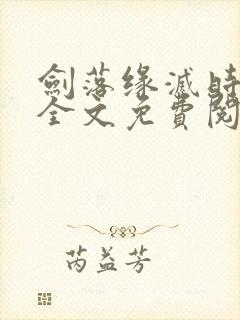 劍落缘滅時
全文免費閱
芮益芳